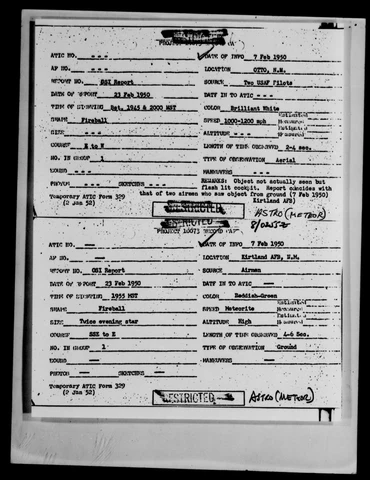 PROJECT 10073 RECORD CARD
ATIC NO. - - - DATE OF INFO 7 Feb 1950
AF NO. - - - LOCATION OTTO, N.M.
REPORT NO. OSI Report SOURCE Two USAF Pilots
DATE OF REPORT 23 Feb 1950 DATE IN TO ATIC - - -
TIME OF SIGHTING Bet. 1945 & 2000 MST COLOR Brilliant White
SHAPE Fireball SPEED 1000-1200 mph Estimated Measured
SIZE - - - ALTITUDE - - Estimated Measured
COURSE E to W LENGTH OF TIME OBSERVED 2-4 sec.
NO. IN GROUP 1 TYPE OF OBSERVATION Aerial
SOUND - - - MANEUVERS - - -
PHOTOS - - SKETCHES - - REMARKS: Object not actually seen but
flash lit cockpit. Report concides with
that of two airmen who saw object from ground (7 Feb 1950)
Kirtland AFB)
Temporary ATIC Form 329
(2 Jan 52)
RESTRICTED
ASTRO (METEOR)
RESTRICTED
PROJECT 10073 RECORD CARD
ATIC NO. — DATE OF INFO 7 Feb 1950
AF NO. — LOCATION Kirtland AFB, N.M.
REPORT NO. OSI Report SOURCE Airman
DATE OF REPORT 23 Feb 1950 DATE IN TO ATIC —
TIME OF SIGHTING 1955 MST COLOR Reddish-Green
SHAPE Fireball SPEED Meteorite Estimated Measured
SIZE Twice evening star ALTITUDE High Estimated Measured
COURSE SSE to E LENGTH OF TIME OBSERVED 4-6 Sec.
NO. IN GROUP 1 TYPE OF OBSERVATION Ground
SOUND — MANEUVERS —
PHOTOS — SKETCHES —
Temporary ATIC Form 329
(2 Jan 52)
RESTRICTED
ASTRO (METEOR)